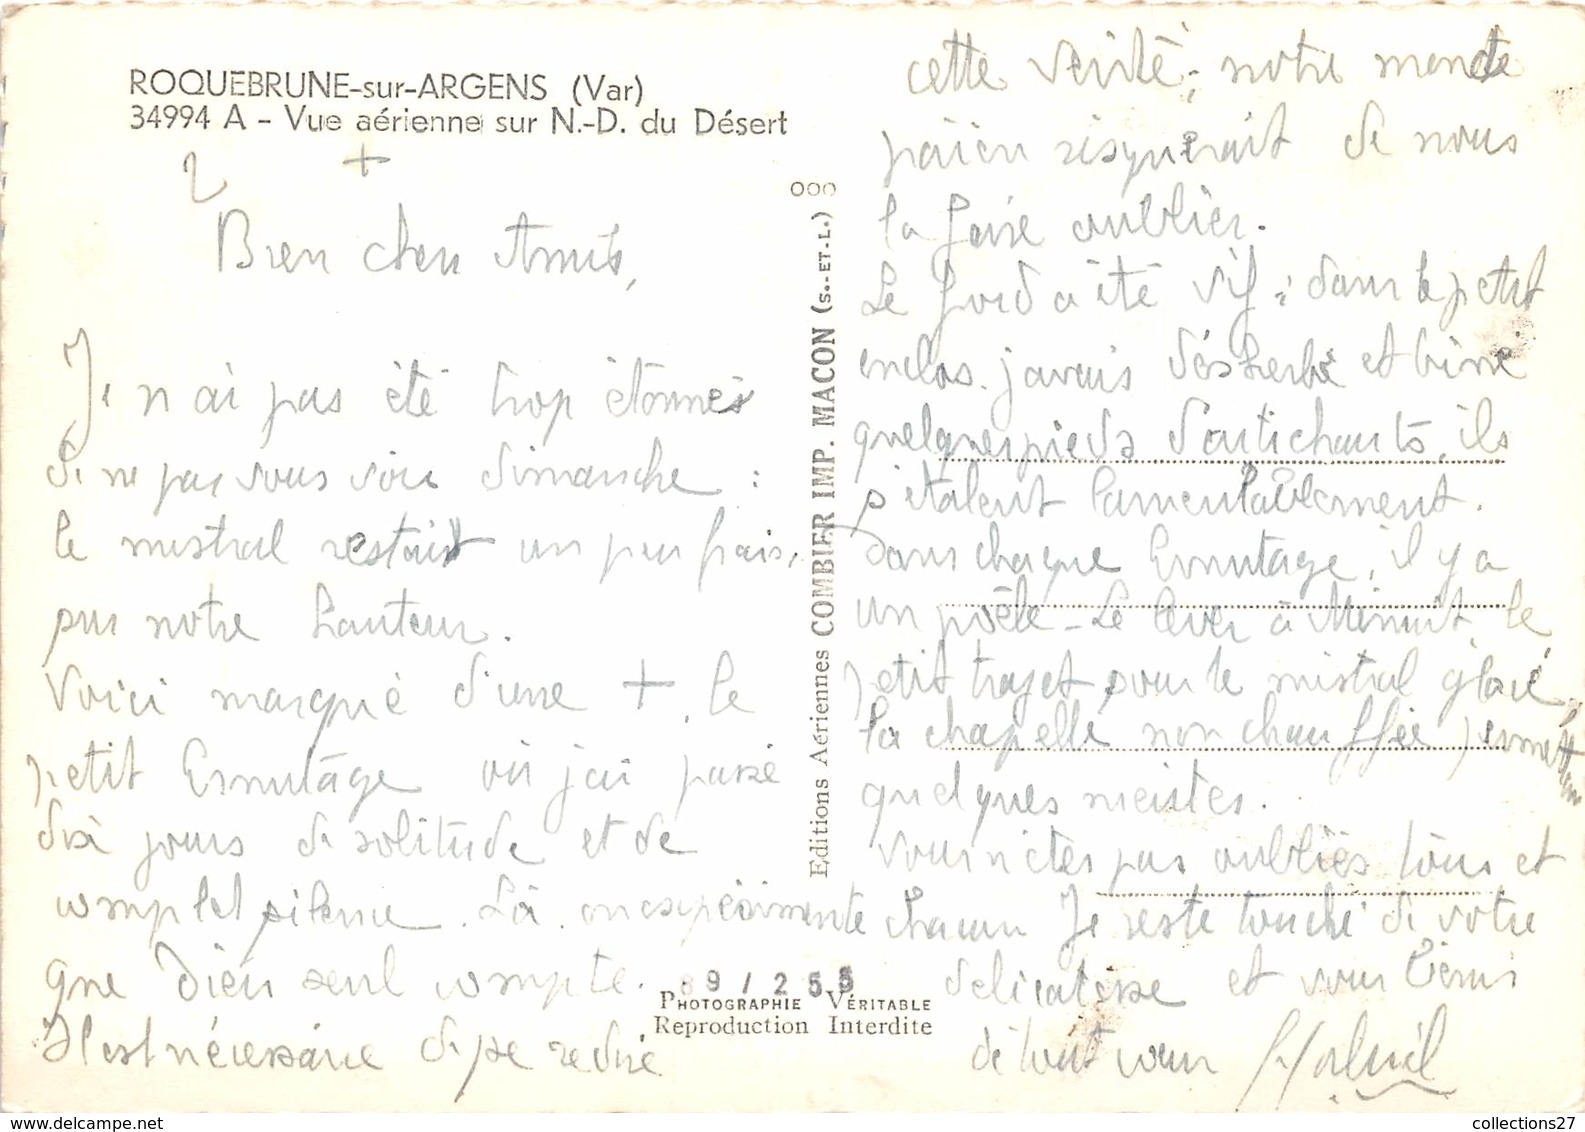 ROQUEBRUNE-sur-ARGENS (Var)
34994 A - Vue aérienne sur N.-D. du Désert
+
Bien cher Amis,
Je n'ai pas été trop étonnés
de ne pas vous voir dimanche :
le mistral restait un peu frais,
sur notre hauteur.
Voici marqué d'une +, le
petit Ermitage où j'ai passé
dix jours de solitude et de
complet silence. Là on expérimente
que Dieu seul compte.
Il est nécessaire de se redire
cette vérité, notre monde
païen risquerait de nous
la faire oublier.
Le froid a été vif : dans le petit
enclos j'avais désherbé et biné
quelques pieds d'artichauts, ils
s'étalent lamentablement.
Dans chaque Ermitage, il y a
un poêle - Le lever à Minuit, le
petit trajet sous le mistral glacé,
la chapelle non chauffée permettent
quelques
Vous n'êtes pas oubliés tous et
chacun Je reste touché de votre
délicatesse et vous bénis
de tout cœur
000
Editions Aériennes COMBIER IMP. MACON (S.-ET-L.)
89/253
PHOTOGRAPHIE VÉRITABLE
Reproduction Interdite
collections27